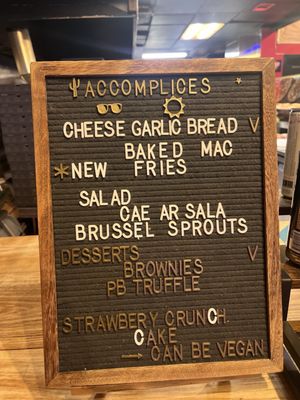 ACCOMPLICES
CHEESE GARLIC BREAD V
BAKED MAC
*NEW FRIES
SALAD
CAE AR SALA
BRUSSEL SPROUTS
DESSERTS V
BROWNIES
PB TRUFFLE
STRAWBERY CRUNCH
CAKE
CAN BE VEGAN